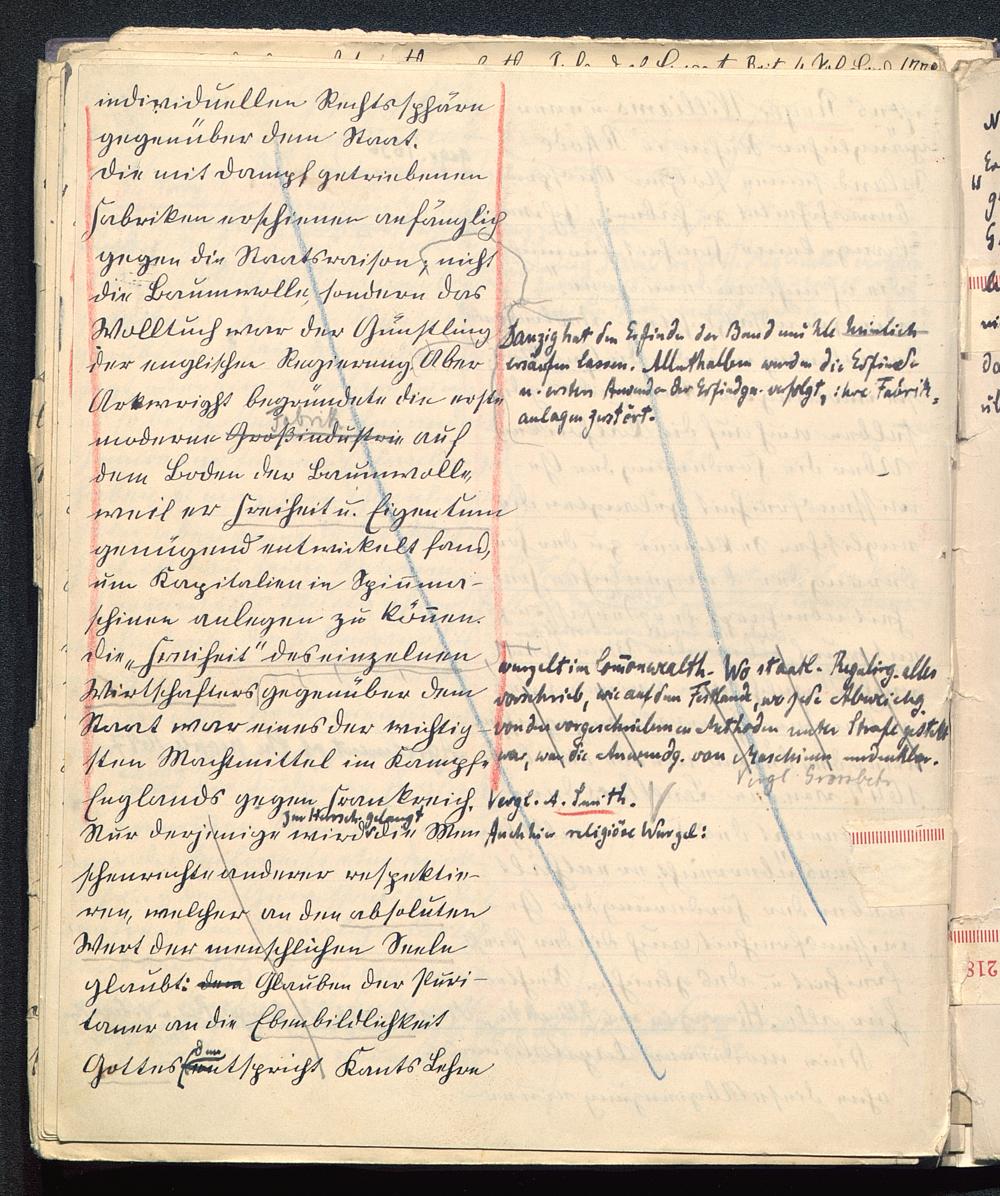 individuellen Rechtssphäre
gegenüber dem Staat.
Die mit Dampf getriebenen
Fabriken erschienen anfänglich
gegen die Staatsraison; nicht
die Baumwolle, sondern das
Wolltuch war der Günstling
der englischen Regierung. Aber
Arkwright begründete die erste
Fabrik
moderne Großindustrie auf
dem Boden der Baumwolle,
weil er Freiheit u. Eigentum
genügend entwickelt fand,
um Kapitalien in Spinnma-
schinen anlegen zu können.
Die „Freiheit" des einzelnen
Wirtschafters gegenüber dem
Staat war eines der wichtig-
sten Machtmittel im Kampfe
Englands gegen Frankreich.
zur Herrsch. gelangt
Nur derjenige wird die Men-
schenrechte anderer respektie-
ren, welcher an den absoluten
Wert der menschlichen Seele
glaubt: dem Glauben der Puri-
taner an die Ebenbildlichkeit
Gottes entspricht Kants Lehre
Danzig hat den Erfinder der Bandmühle heimlich
ersäufen lassen. Allenthalben wurden die Erfinder
u. ersten Anwender der Erfindgn. verfolgt, ihre Fabrik-
anlagen zerstört.
wurzelt im Commonwealth. Wo staatl. Regulirg. alles
vorschrieb, wie auf dem Festlande, wo jede Abweichg.
von den vorgeschriebenen Methoden unter Strafe gestellt
war, war die Anwendg. von Maschinen undenkbar.
Vergl.
Vergl. A. Smith.
Auch hier religiöse Wurzel:
218